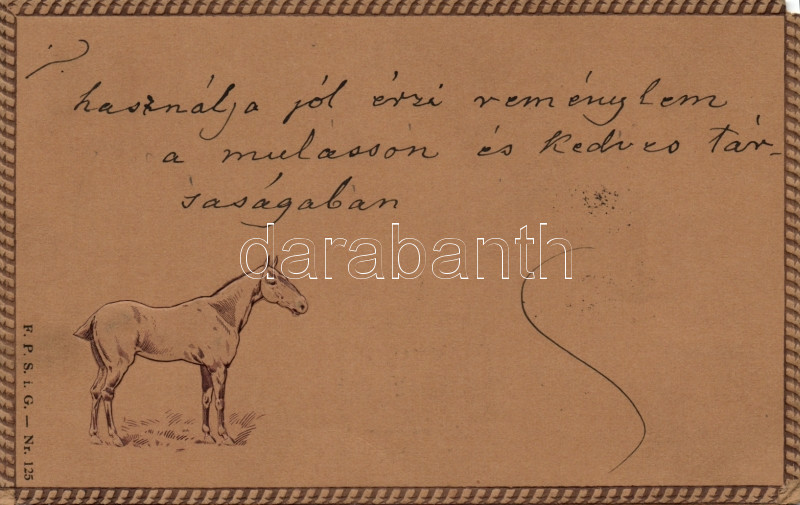 használja jól érzi reménylem
a mulasson és kedves tár-
saságaban
darabanth
F. P. S. i. G. — Nr. 125